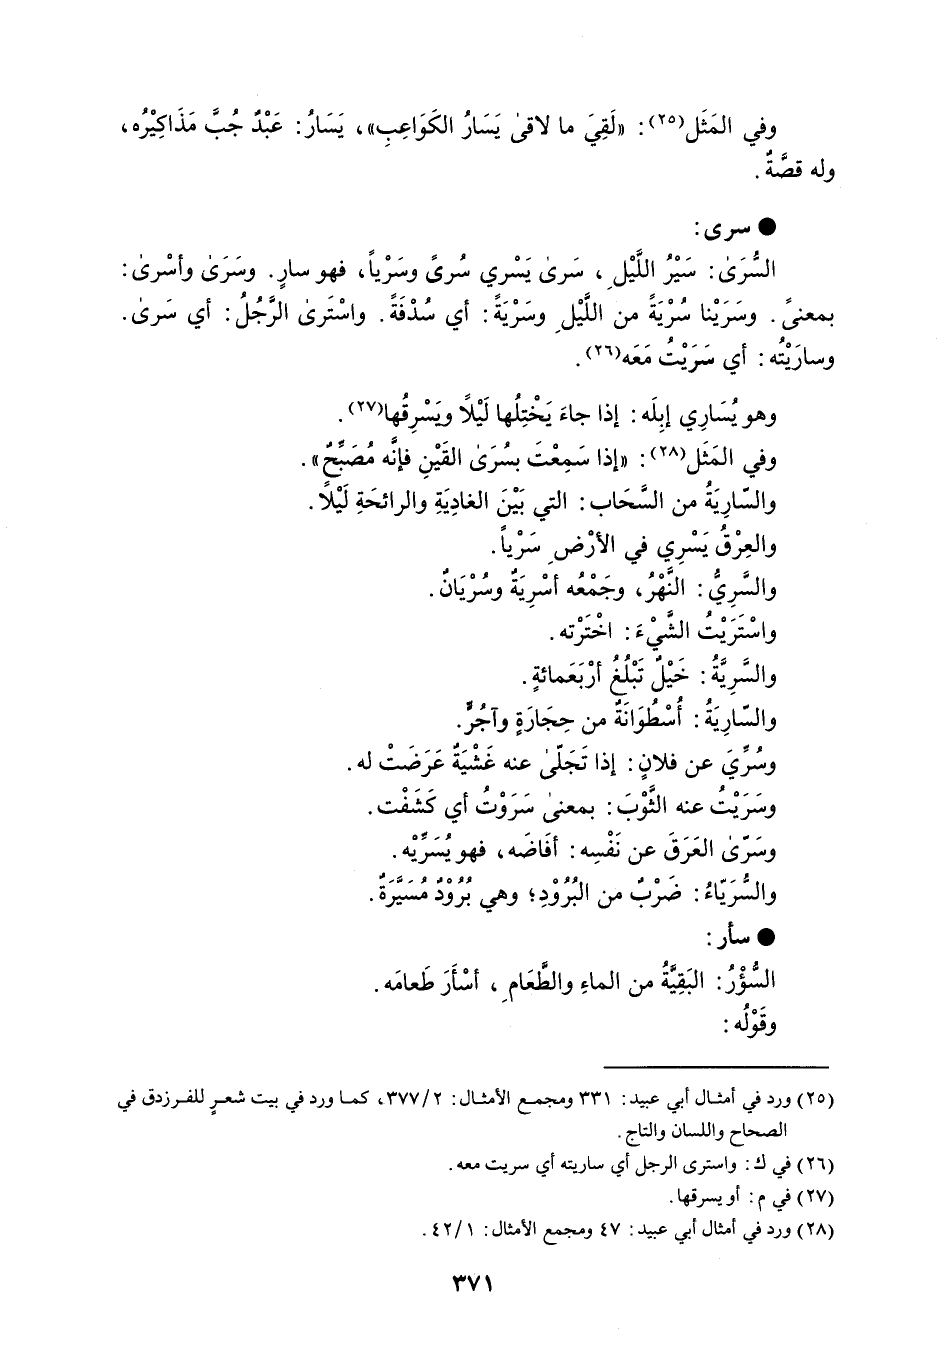 وفي المَثَل(٢٥): «لَقِيَ ما لاقىٰ يَسَارُ الكَوَاعِبِ»، يَسَارُ: عَبْدٌ جُبَّ مَذَاكِيْرُه،
وله قصَّةٌ.
● سرى:
السُّرَىٰ: سَيْرُ اللَّيْلِ، سَرىٰ يَسْري سُرىً وسَرْياً، فهو سارٍ. وسَرَىٰ وأسْرىٰ:
بمعنىً. وسَرَيْنا سُرْيَةً من اللَّيْلِ وسَرْيَةً: أي سُدْفَةً. واسْتَرىٰ الرَّجُلُ: أي سَرىٰ.
وسارَيْتُه: أي سَرَيْتُ مَعَه(٢٦).
وهو يُسَارِي إبِلَه: إذا جاءَ يَخْتِلُها لَيْلًا ويَسْرِقُها(٢٧).
وفي المَثَل(٢٨): «إذا سَمِعْتَ بسُرَىٰ القَيْنِ فإنَّه مُصَبِّحٌ».
والسّارِيَةُ من السَّحَاب: التي بَيْنَ الغادِيَةِ والرائحَةِ لَيْلًا.
والعِرْقُ يَسْرِي في الأرْضِ سَرْياً.
والسَّرِيُّ: النَّهْرُ، وجَمْعُه أسْرِيَةٌ وسُرْيَانٌ.
واسْتَرَيْتُ الشَّيْءَ: اخْتَرْته.
والسَّرِيَّةُ: خَيْلٌ تَبْلُغُ أرْبَعَمائةٍ.
والسّارِيَةُ: أُسْطُوَانَةٌ من حِجَارَةٍ وآجُرٍّ.
وسُرِّيَ عن فلانٍ: إذا تَجَلّىٰ عنه غَشْيَةٌ عَرَضَتْ له.
وسَرَيْتُ عنه الثَّوْبَ: بمعنىٰ سَرَوْتُ أي كَشَفْت.
وسَرّىٰ العَرَقَ عن نَفْسِه: أفَاضَه، فهو يُسَرِّيْه.
والسُّرَيّاءُ: ضَرْبٌ من البُرُوْدِ؛ وهي بُرُوْدٌ مُسَيَّرَةٌ.
● سأر:
السُّؤْرُ: البَقِيَّةُ من الماءِ والطَّعَامِ، أسْأَرَ طَعامَه.
وقَوْلُه:
(٢٥) ورد في أمثال أبي عبيد: ٣٣١ ومجمع الأمثال: ٣٧٧/٢، كما ورد في بيت شعرٍ للفرزدق في
الصحاح واللسان والتاج.
(٢٦) في ك: واسترى الرجل أي ساريته أي سريت معه.
(٢٧) في م: أو يسرقها.
(٢٨) ورد في أمثال أبي عبيد: ٤٧ ومجمع الأمثال: ٤٢/١.
٣٧١